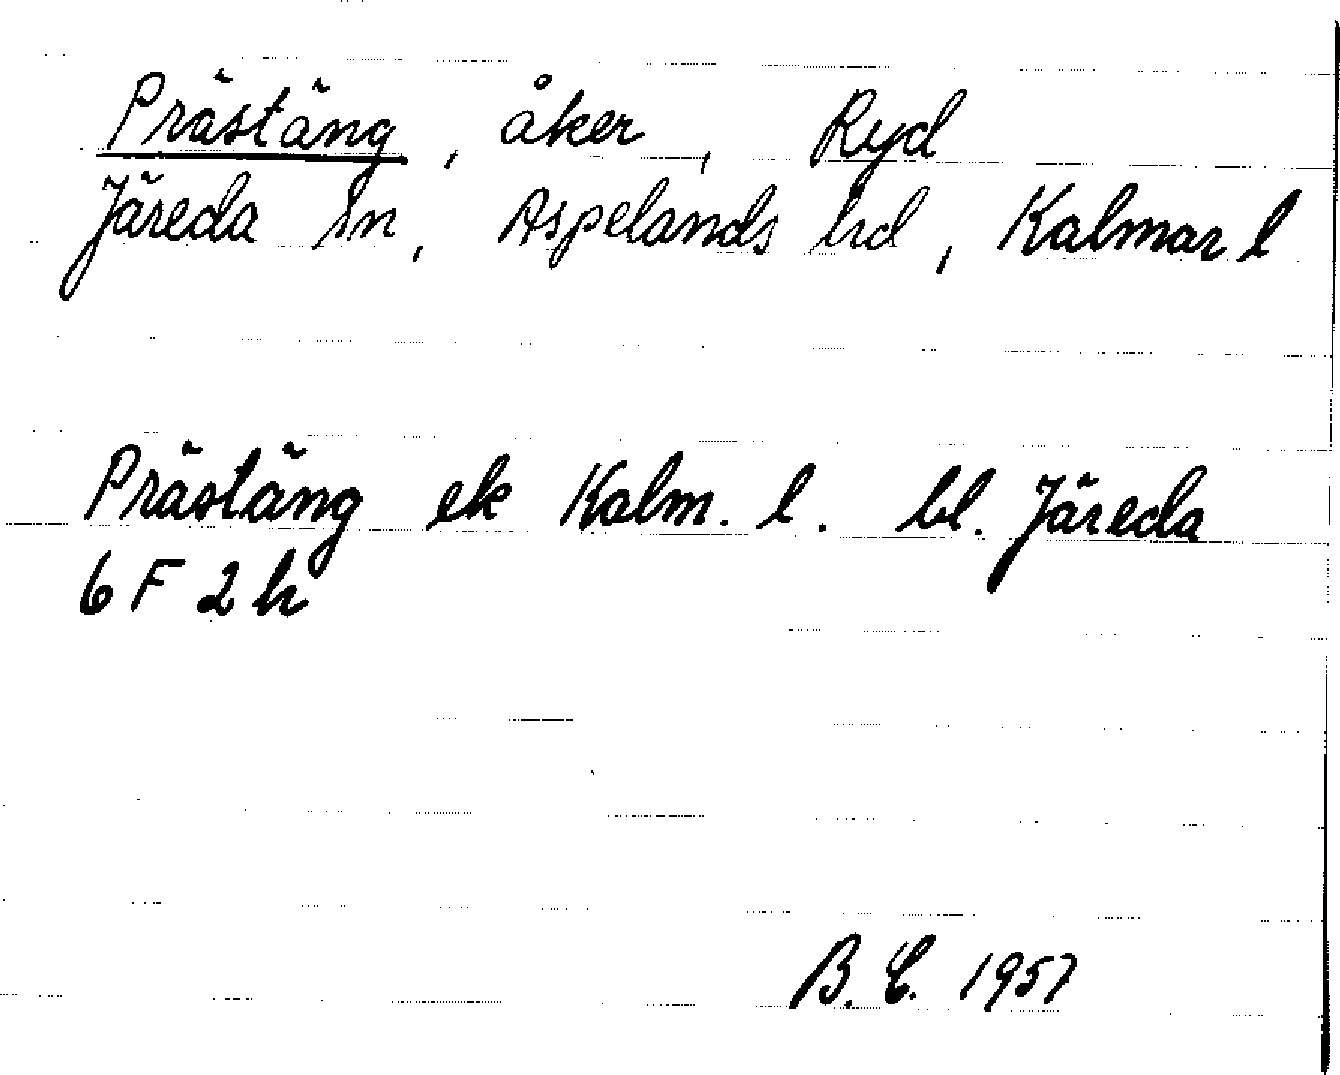 Prästäng, åker, Ryd
Järeda sn, Aspelands hd, Kalmar l
Prästäng ek Kalm. l. bl. Järeda
6 F 2 h
B. E. 1957